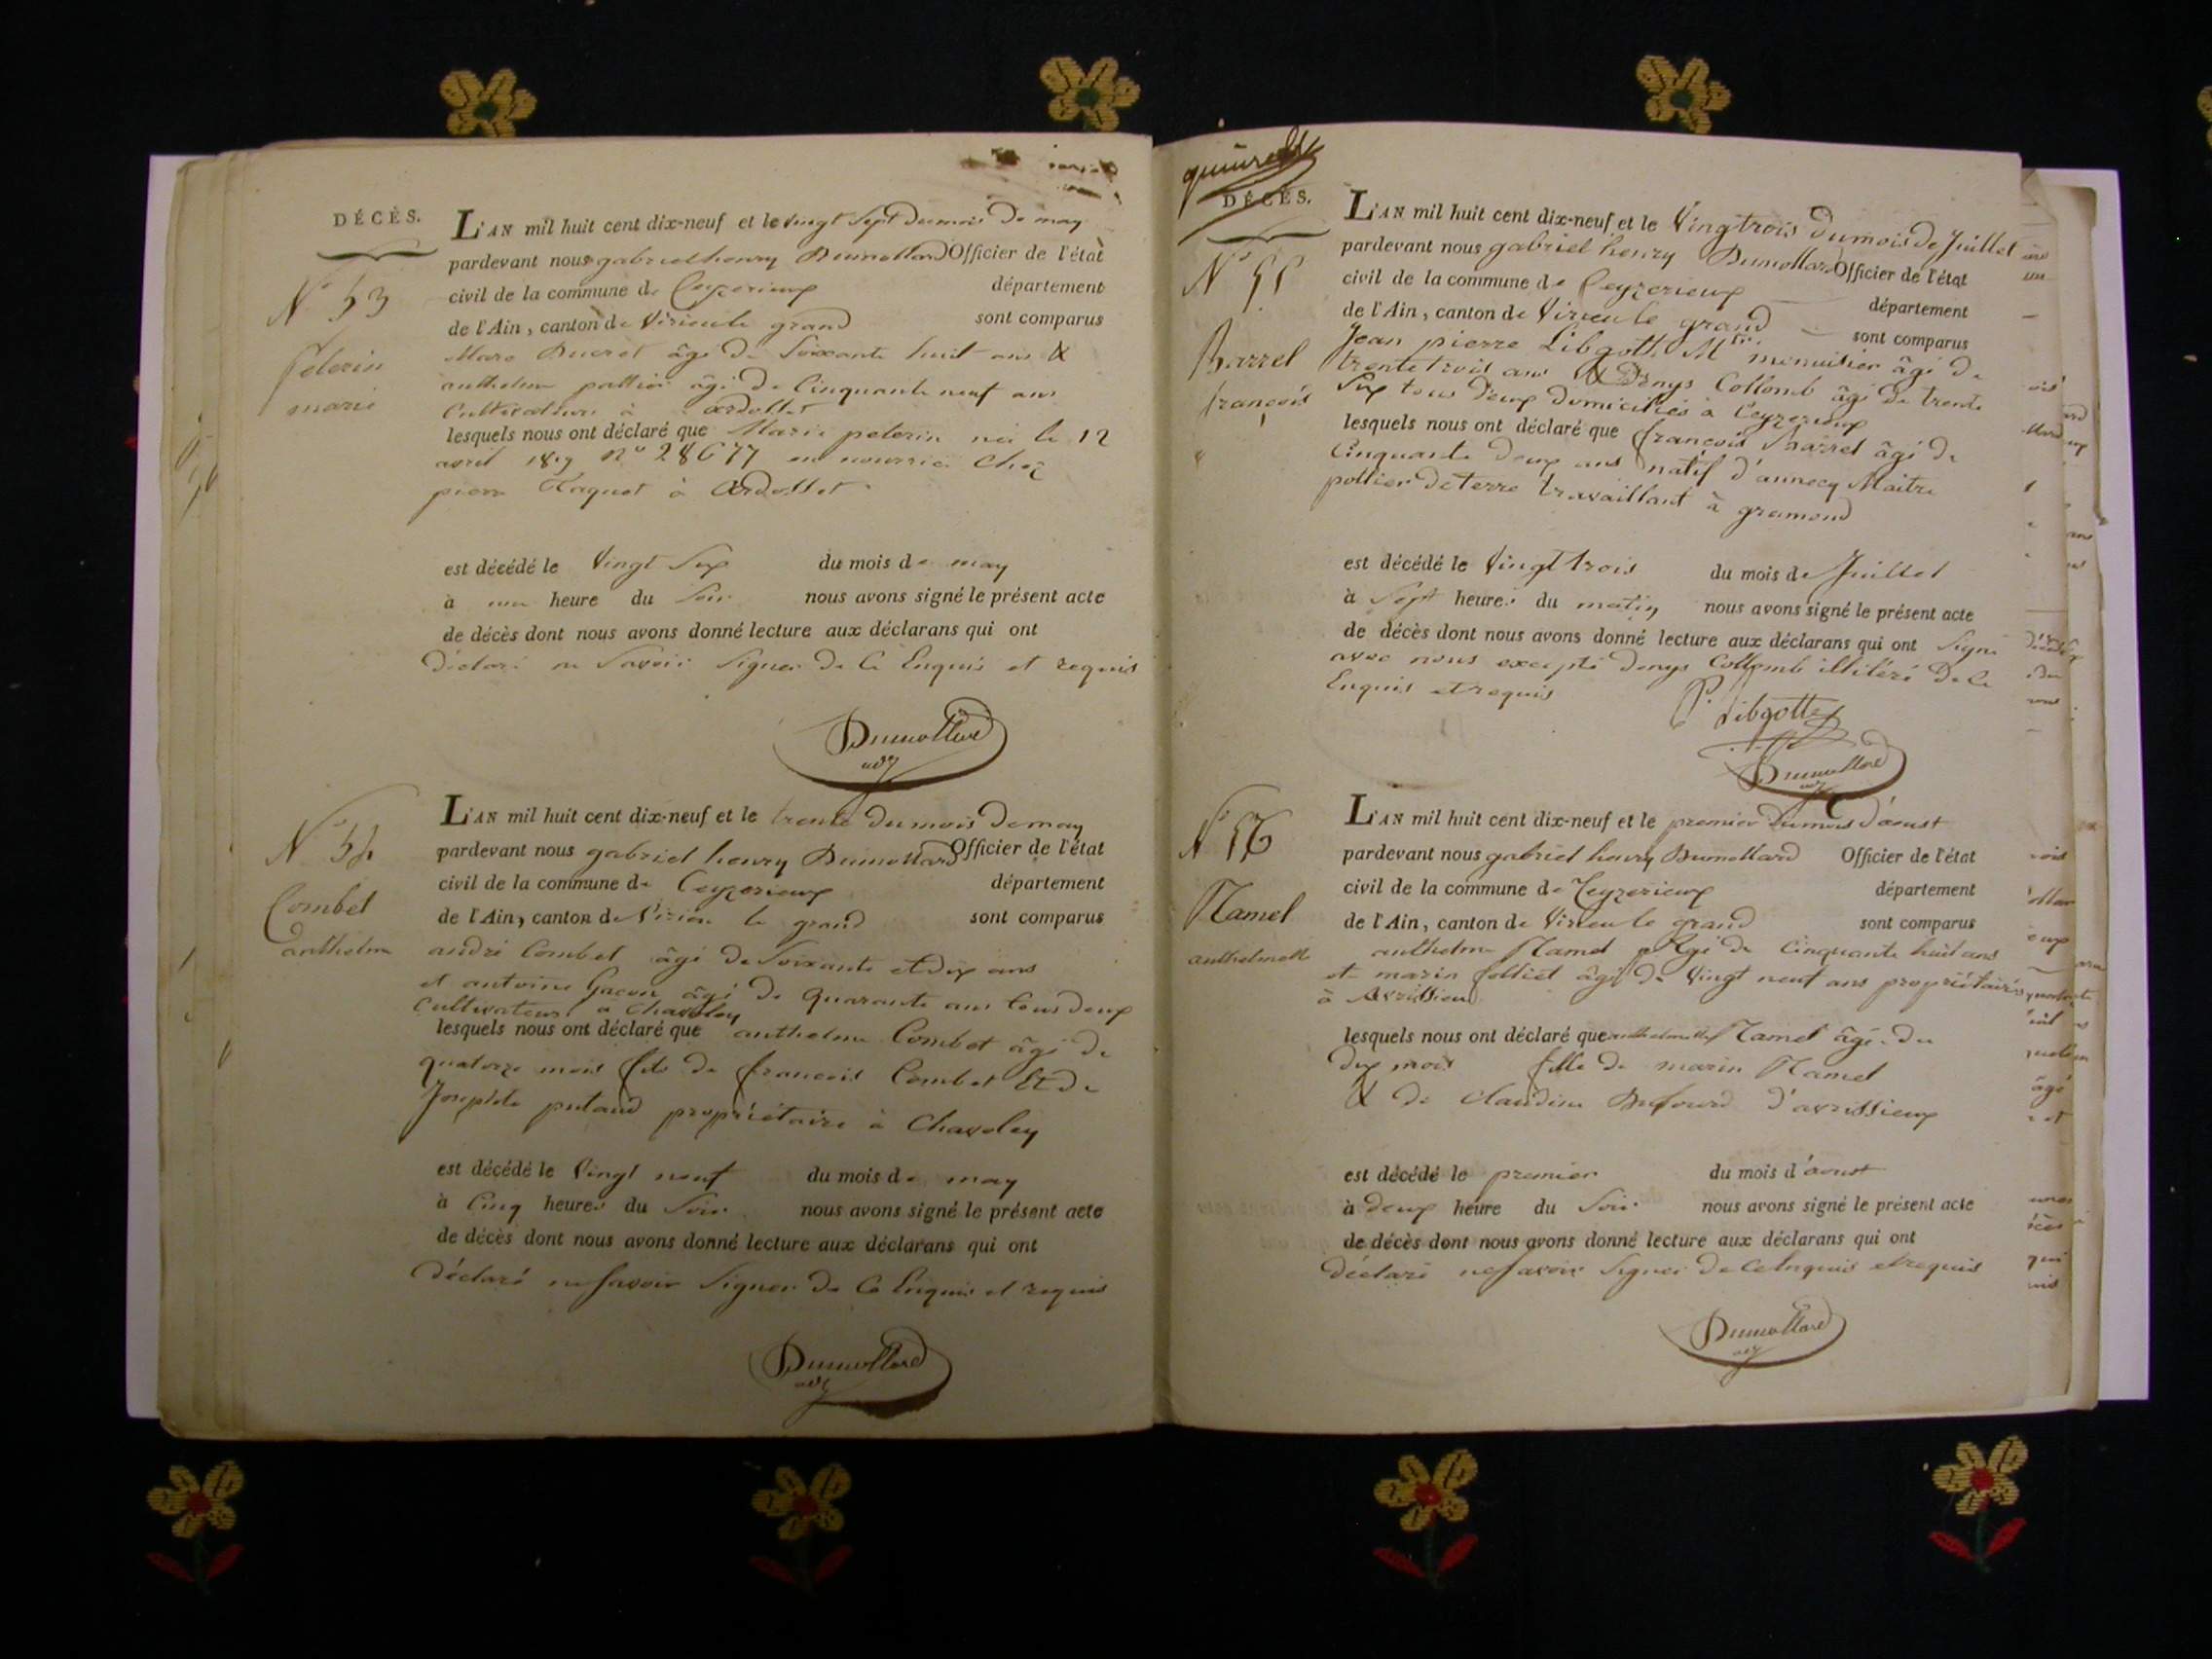 DÉCÈS.
L'AN mil huit cent dix-neuf et le vingt Sept du mois De may
pardevant nous gabriel henry Dumollard Officier de l'état
civil de la commune de Ceyzerieux département
de l'Ain, canton de Virieu le grand sont comparus
N° 53
pelerin
marie
Marc Ducret âgé De Soixante huit ans &
anthelme pattier âgé De Cinquante neuf ans
Cultivateurs à ardosset
lesquels nous ont déclaré que Marie pelerin née le 12
avril 1819 n° 28677 en nourrice Chez
pierre Raquet à Ardosset
est décédé le Vingt Six du mois de may
à une heure du Soir nous avons signé le présent acte
de décès dont nous avons donné lecture aux déclarans qui ont
déclaré ne Savoir Signer De Ce Enquis et requis
Dumollard
adj
L'AN mil huit cent dix-neuf et le trente du mois De may
N° 54
pardevant nous gabriel henry Dumollard Officier de l'état
civil de la commune de Ceyzerieux département
de l'Ain, canton de Virieu le grand sont comparus
Combet
anthelme
andré Combet âgé de Soixante et dix ans
et antoine Gacon âgé De quarante ans tous deux
Cultivateurs a Chavoley
lesquels nous ont déclaré que anthelme Combet âgé de
quatorze mois fils de francois Combet Et De
Josephte putaud propriétaire à Chavoley
est décédé le Vingt neuf du mois de may
à Cinq heures du Soir nous avons signé le présent acte
de décès dont nous avons donné lecture aux déclarans qui ont
déclaré ne Savoir Signer De Ce Enquis et requis
Dumollard
adj
DÉCÈS.
L'AN mil huit cent dix-neuf et le Vingt trois Du mois De Juillet
pardevant nous gabriel henry Dumollard Officier de l'état
civil de la commune de Ceyzerieux département
de l'Ain, canton de Virieu le grand sont comparus
N° 55
Barrel
francois
Jean pierre Libgott Mtre menuisier âgé De
trente trois ans & Denys Collomb âgé De trente
Six tous deux domiciliés à Ceyzerieux
lesquels nous ont déclaré que francois Barrel âgé De
Cinquante deux ans natif d'annecy Maitre
pottier de terre travaillant à gramond
est décédé le Vingt trois du mois de Juillet
à Sept heures du matin nous avons signé le présent acte
de décès dont nous avons donné lecture aux déclarans qui ont Signé
avec nous excepté denys Collomb illitéré De Ce
Enquis et requis
P. Libgotte
Dumollard
L'AN mil huit cent dix-neuf et le premier Du mois d'aoust
N° 56
pardevant nous gabriel henry Dumollard Officier de l'état
civil de la commune de Ceyzerieux département
de l'Ain, canton de Virieu le grand sont comparus
Namel
anthelmette
anthelme Namel Agé De Cinquante huit ans
et marin folliet âgé De Vingt neuf ans propriétaires
à Avrissieu
lesquels nous ont déclaré que anthelmette Namel âgée De
dix mois fille de marin Namel
& De Claudine Dufourd d'avrissieux
est décédé le premier du mois d'aoust
à deux heure du Soir nous avons signé le présent acte
de décès dont nous avons donné lecture aux déclarans qui ont
déclaré ne Savoir Signer De Ce Enquis et requis
Dumollard
adj